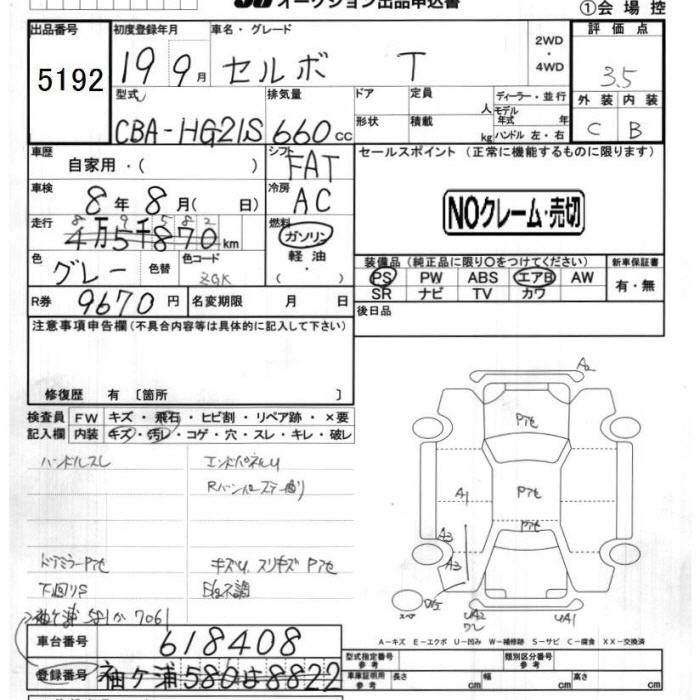 オークション出品申込書
①会場控
出品番号
5192
初度登録年月
19 9月
車名・グレード
セルボ T
2WD
・
4WD
評価点
3.5
外装 内装
C B
型式
CBA-HG21S
排気量
660cc
ドア
形状
定員 人
積載 kg
ディーラー・並行
モデル年式 年
ハンドル 左・右
車歴
自家用・( )
シフト
FAT
セールスポイント (正常に機能するものに限ります)
NOクレーム・売切
車検
8年8月( 日)
冷房
AC
走行
8 9 5 8 2
4万5千870km
燃料
ガソリン
軽油
・( )
色
グレー
色替
色コード
ZGK
装備品(純正品に限り○をつけてください)
PS PW ABS エアB AW
SR ナビ TV カワ
新車保証書
有・無
R券 9670円
名変期限 月 日
後日品
注意事項申告欄(不具合内容等は具体的に記入して下さい)
修復歴 有〔箇所 〕
検査員記入欄
FW キズ・飛石・ヒビ割・リペア跡・×要
内装 キズ・汚レ・コゲ・穴・スレ・キレ・破レ
ハンドルスレ
エンドパネルU
ドアミラーPアセ
キズU. スリキズ Pアセ
下回りS
袖ケ浦 581か 7061
A2
Pアセ
A1
Pアセ
Pアセ
A3
A3
スペア
UA2
UA1
A−キズ E−エクボ U−凹み W−補修跡 S−サビ C−腐食 XX−交換済
車台番号
618408
型式指定番号
参考
類別区分番号
参考
登録番号
袖ケ浦 580は8822
車庫証明用
参考
長さ cm
幅 cm
高さ cm